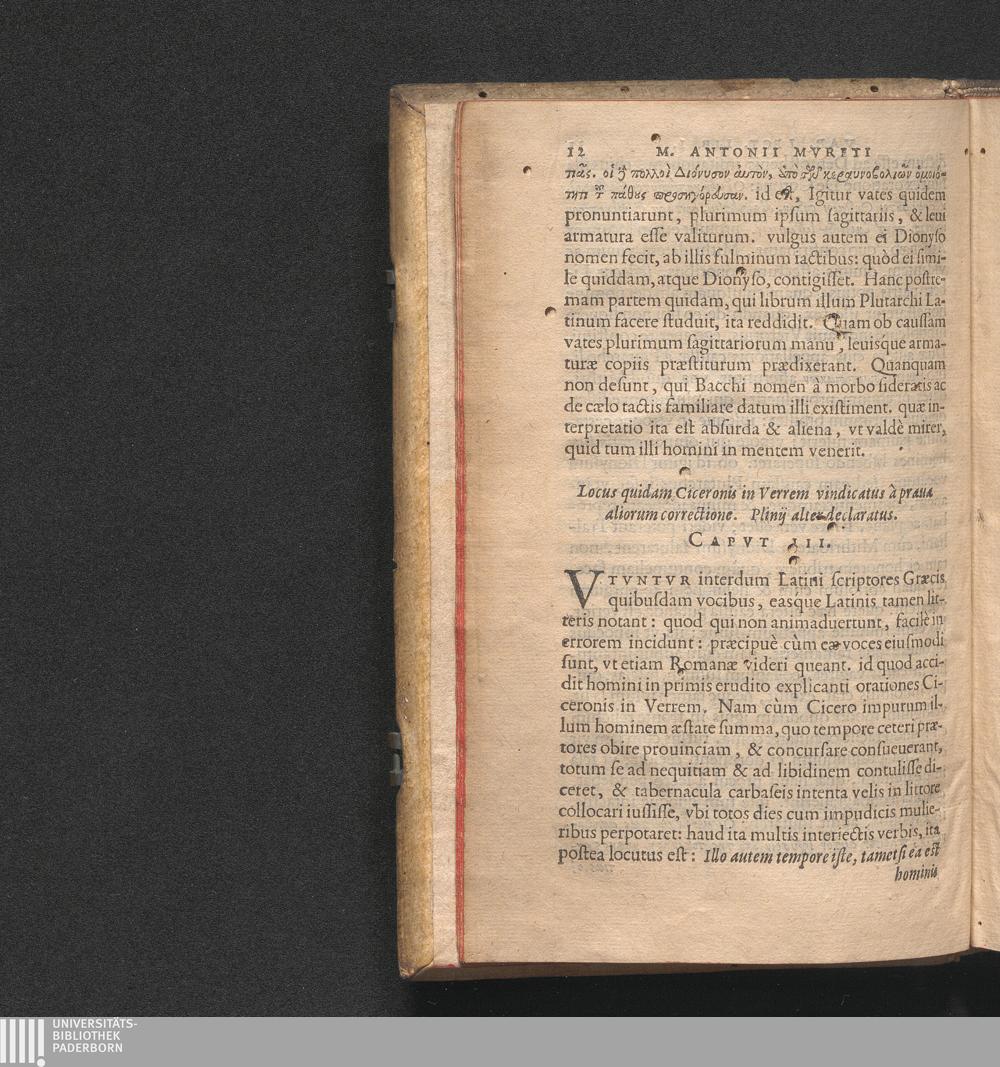 12 M. ANTONII MVRETI
πᾶς. οἱ ȣ̓͂ πολλοὶ Διόνυσον αὐτὸν, ἀπὸ τῆς κεραυνοβολιῶν ὁμοιό-
τητι τ πάθους προσηγόρευσαν. id est, Igitur vates quidem
pronuntiarunt, plurimum ipsum sagittariis, & leui
armatura esse valiturum. vulgus autem ei Dionyso
nomen fecit, ab illis fulminum iactibus: quòd ei simi-
le quiddam, atque Dionyso, contigisset. Hanc postre-
mam partem quidam, qui librum illum Plutarchi La-
tinum facere studuit, ita reddidit. Quam ob caussam
vates plurimum sagittariorum manu, leuisque arma-
turæ copiis præstiturum prædixerant. Quanquam
non desunt, qui Bacchi nomen à morbo sideratis ac
de cælo tactis familiare datum illi existiment. quæ in-
terpretatio ita est absurda & aliena, vt valdè mirer,
quid tum illi homini in mentem venerit.
Locus quidam Ciceronis in Verrem vindicatus à praua
aliorum correctione. Plinij alter declaratus.
CAPVT III.
VTVNTVR interdum Latini scriptores Græcis
quibusdam vocibus, easque Latinis tamen lit-
teris notant: quod qui non animaduertunt, facilè in
errorem incidunt: præcipuè cùm eæ voces eiusmodi
sunt, vt etiam Romanæ videri queant. id quod acci-
dit homini in primis erudito explicanti orationes Ci-
ceronis in Verrem. Nam cùm Cicero impurum il-
lum hominem æstate summa, quo tempore ceteri præ-
tores obire prouinciam, & concursare consueuerant,
totum se ad nequitiam & ad libidinem contulisse di-
ceret, & tabernacula carbaseis intenta velis in littore
collocari iussisse, vbi totos dies cum impudicis mulie-
ribus perpotaret: haud ita multis interiectis verbis, ita
postea locutus est: Illo autem tempore iste, tametsi ea est
hominis
UNIVERSITÄTS-
BIBLIOTHEK
PADERBORN